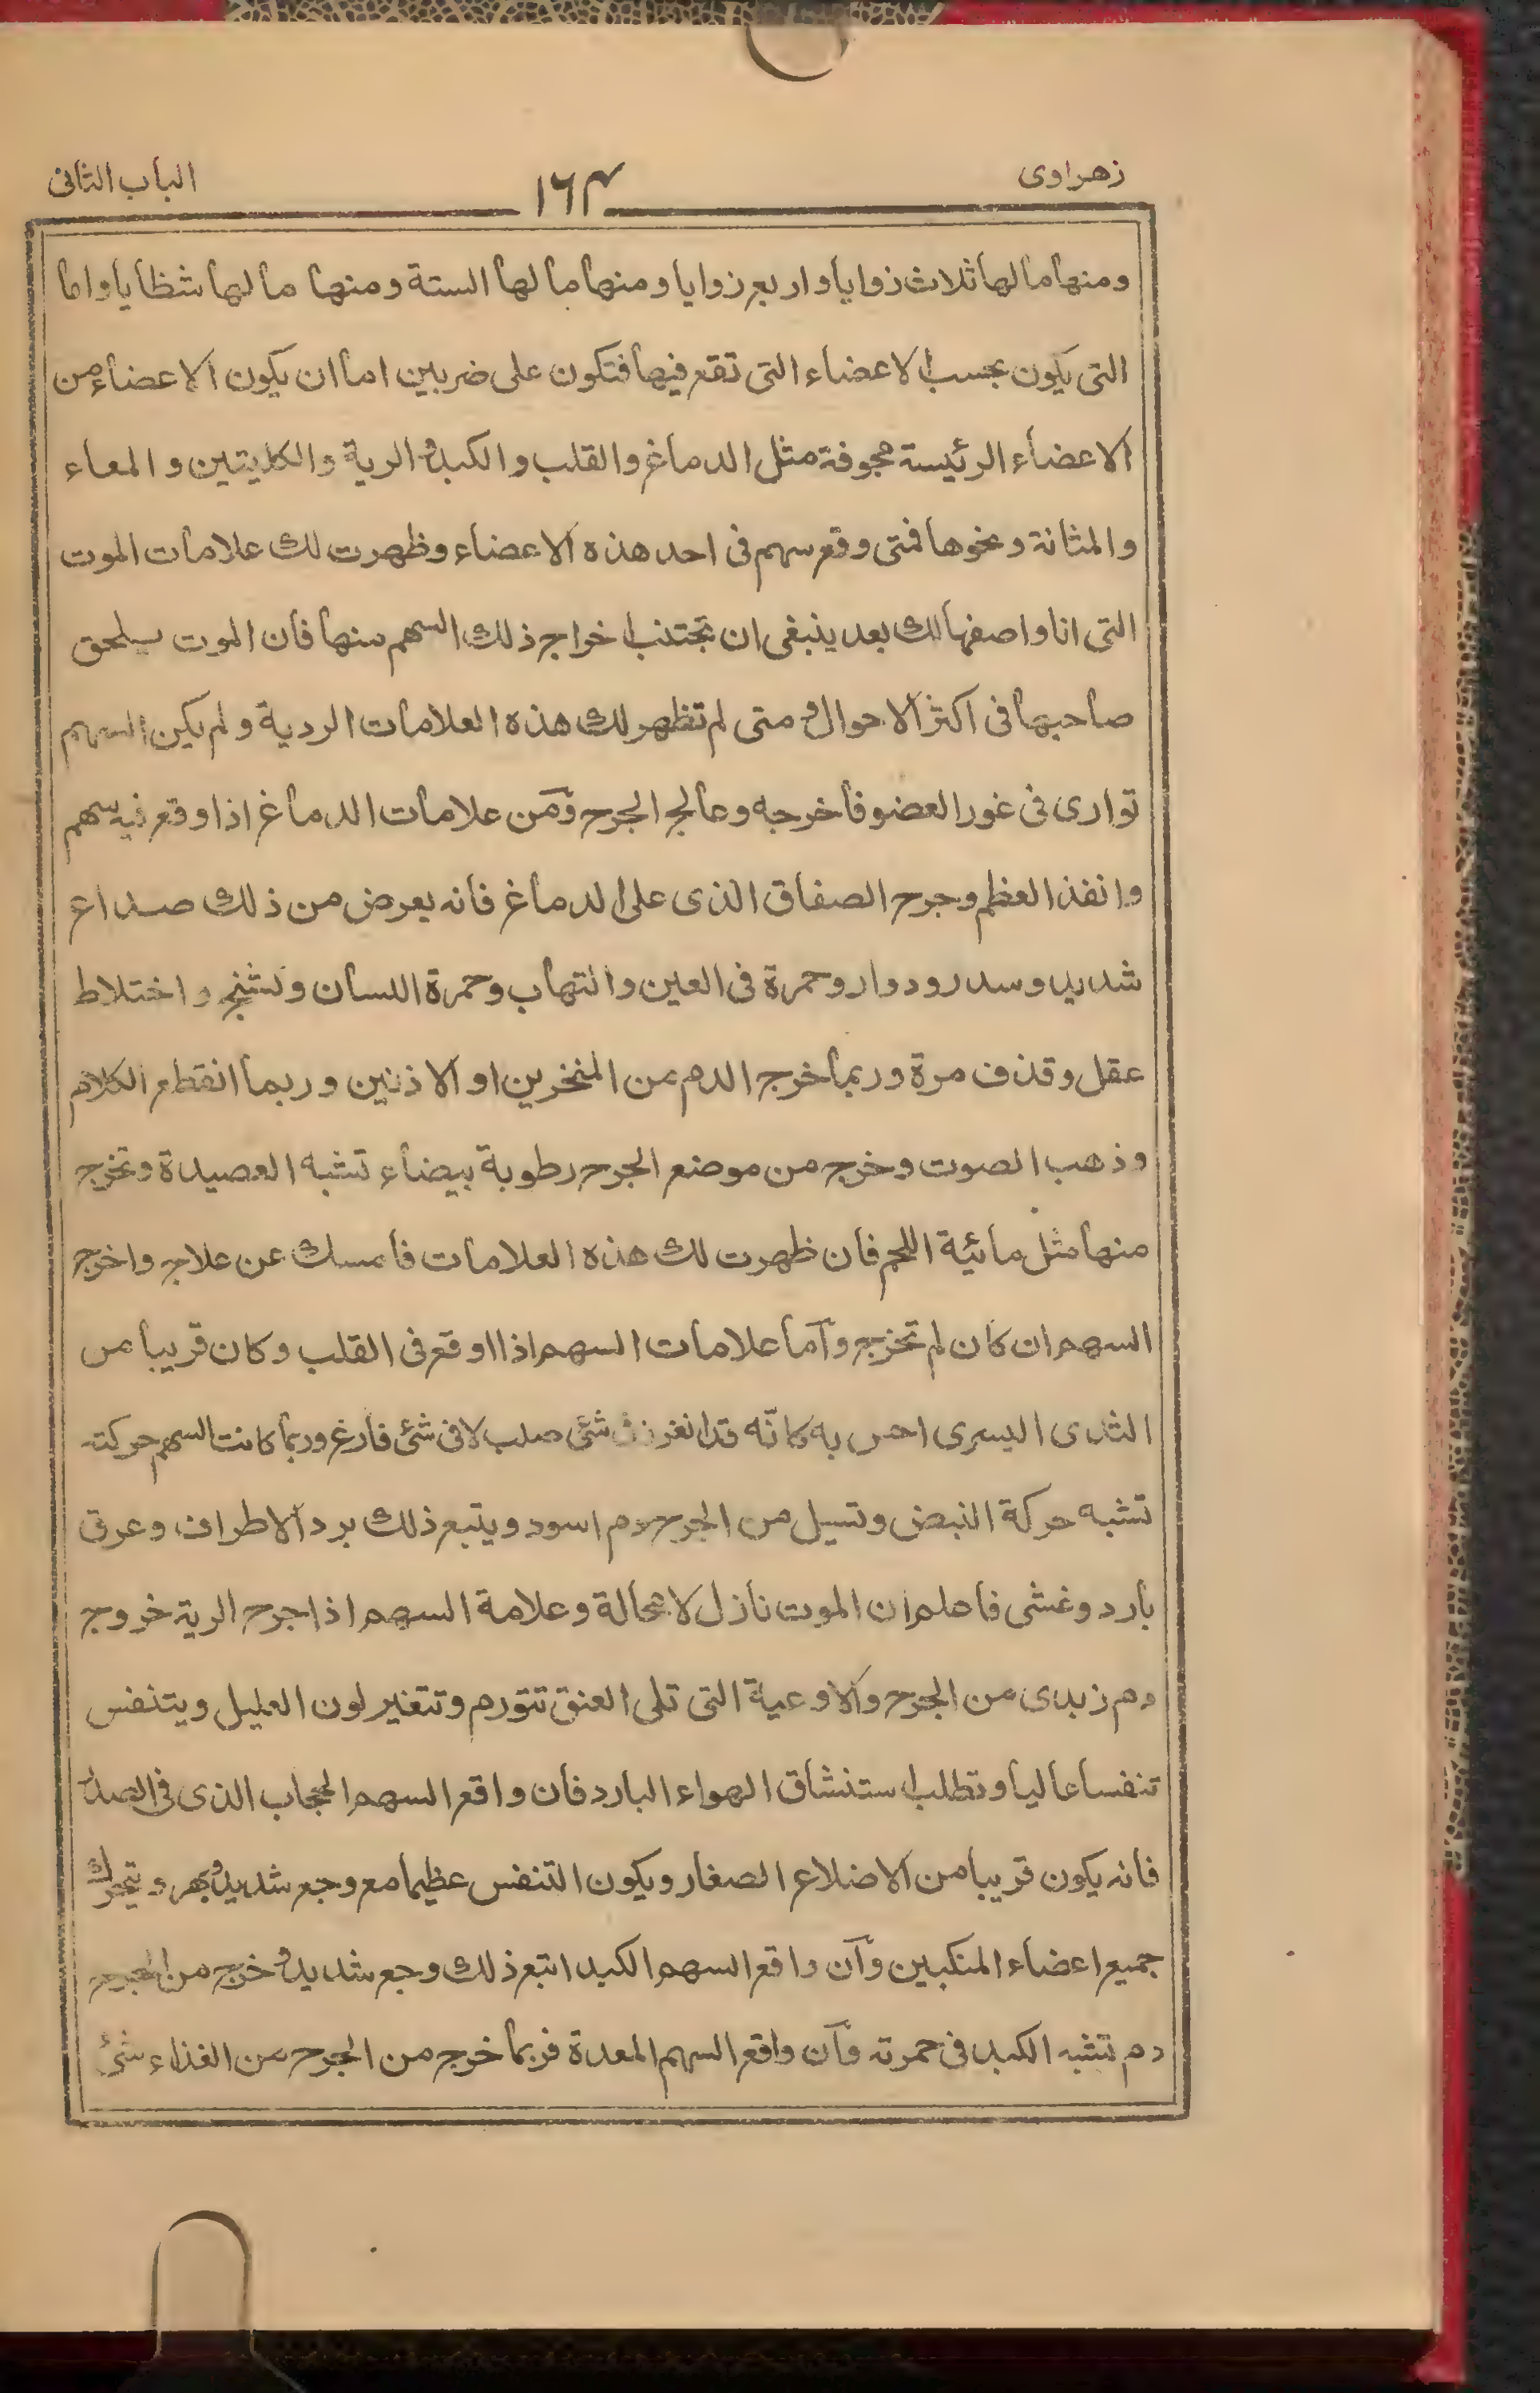 زهراوى ١٦٤ الباب الثانى
ومنها ما لها ثلاث زوايا واربع زوايا ومنها ما لها الستة ومنها ما لها شظايا واما
التى يكون بحسب الاعضاء التى تقع فيها فتكون على ضربين اما ان يكون الاعضاء من
الاعضاء الرئيسة مجوفة مثل الدماغ والقلب والكبد والرية والكليتين والمعاء
والمثانة ونحوها فمتى وقع سهم فى احد هذه الاعضاء وظهرت لك علامات الموت
التى انا واصفها لك بعد ينبغى ان تجتنب اخراج ذلك السهم منها فان الموت سيلحق
صاحبها فى اكثر الاحوال ومتى لم تظهر لك هذه العلامات الردية ولم يكن السهم
توارى فى غور العضو فاخرجه وعالج الجرح ومن علامات الدماغ اذا وقع فيه سهم
وانفذ العظم وجرح الصفاق الذى على الدماغ فانه يعرض من ذلك صداع
شديد وسدر ودوار وحمرة فى العين والتهاب وحمرة اللسان وتشنج واختلاط
عقل وقذف مرة وربما خرج الدم من المنخرين او الاذنين وربما انقطع الكلام
وذهب الصوت وخرج من موضع الجرح رطوبة بيضاء تشبه العصيدة وتخرج
منها مثل مائية اللحم فان ظهرت لك هذه العلامات فامسك عن علاجه واخرج
السهم ان كان لم تخرج واما علامات السهم اذا اوقع فى القلب وكان قريبا من
الثدى اليسرى احس به كانّه قد انغرز فى شئ صلب لا فى شئ فارغ وربما كانت السهم حركته
تشبه حركة النبض وتسيل من الجرح دم اسود ويتبع ذلك برد الاطراف وعرق
بارد وغشى فاعلم ان الموت نازل لا محالة وعلامة السهم اذا جرح الرية خروج
دم زبدى من الجرح والاوعية التى تلى العنق تتورم وتتغير لون العليل ويتنفس
تنفسا عاليا وتطلب استنشاق الهواء البارد فان واقع السهم الحجاب الذى فى الصدر
فانه يكون قريبا من الاضلاع الصغار ويكون التنفس عظيما مع وجع شديد وبهر ويتحرك
جميع اعضاء المنكبين وان واقع السهم الكبد اتبع ذلك وجع شديد وخرج من الجرح
دم تشبه الكبد فى حمرته وان واقع السهم المعدة فربما خرج من الجرح من الغذاء شئ